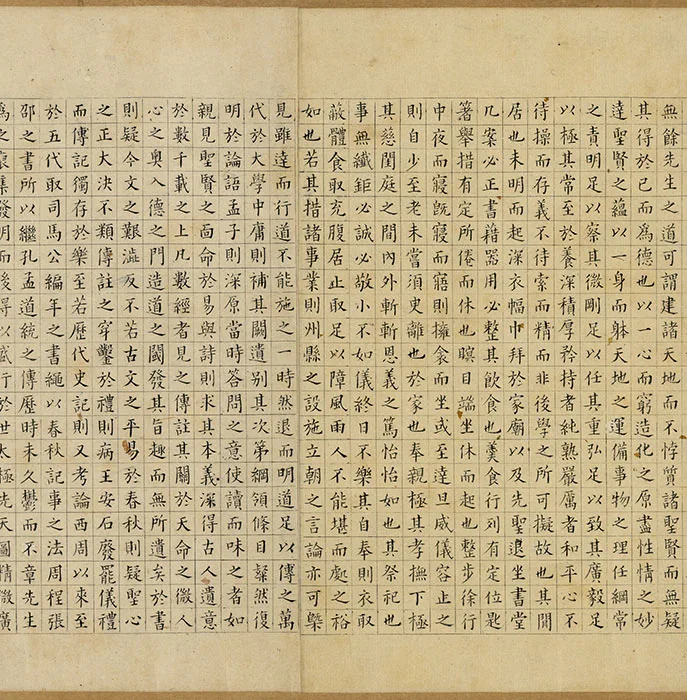 無餘先生之道可謂建諸天地而不悖質諸聖賢而無疑
其得於己而爲德也以一心而窮造化之原盡性情之妙
達聖賢之蘊以一身而躰天地之運備事物之理任綱常
之責明足以察其微剛足以任其重弘足以致其廣毅足
以極其常至於養深積厚矜持者純熟嚴厲者和平心不
待操而存義不待索而精而非後學之所可擬故也其閒
居也未明而起深衣幅巾拜於家廟以及先聖退坐書堂
几案必正書籍器用必整其飲食也羹食行列有定位匙
箸舉措有定所倦而休也瞑目端坐休而起也整步徐行
中夜而寢既寢而寤則擁衾而坐或至達旦威儀容止之
則自少至老未嘗須臾離也於家也奉親極其孝撫下極
其慈閨庭之間內外斬斬恩義之篤怡怡如也其祭祀也
事無纖鉅必誠必敬小不如儀終日不樂其自奉則衣取
蔽體食取充腹居止取足以障風雨人不能堪而處之裕
如也若其措諸事業則州縣之設施立朝之言論亦可槩
見雖達而行道不能施之一時然退而明道足以傳之萬
代於大學中庸則補其闕遺別其次第綱領條目粲然復
明於論語孟子則深原當時答問之意使讀而味之者如
親見聖賢之面命於易與詩則求其本義深得古人遺意
於數千載之上凡數經者見之傳註其關於天命之微人
心之奧入德之門造道之閫發其旨趣而無所遺矣於書
則疑今文之艱澁反不若古文之平易於春秋則疑聖心
之正大決不類傳註之穿鑿於禮則病王安石廢罷儀禮
而傳記獨存於樂至若歷代史記則又考論西周以來至
於五代取司馬公編年之書繩以春秋記事之法周程張
邵之書所以繼孔孟道統之傳歷時未久鬱而不章先生
爲之裒集發明而後得以盛行於世太極先天圖精微廣